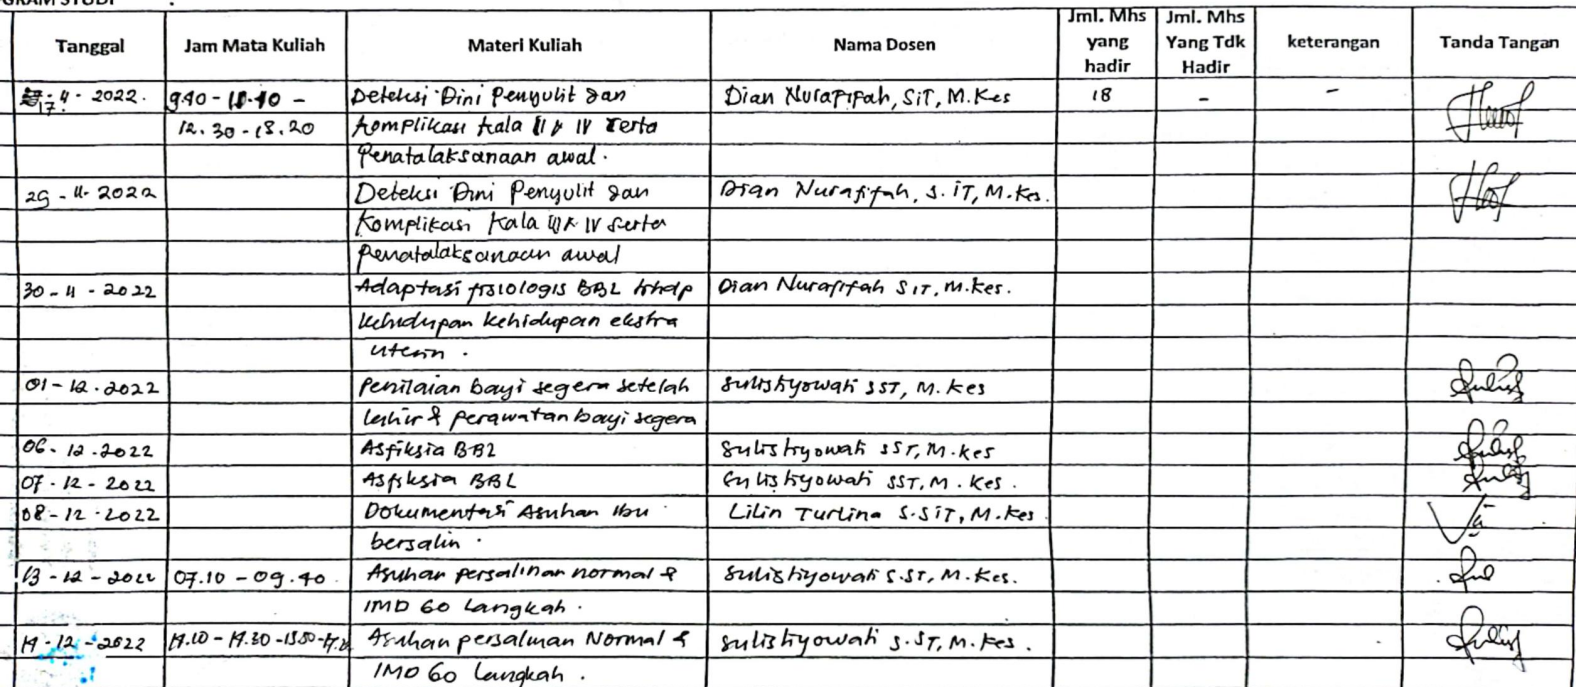 Tanggal Jam Mata Kuliah Materi Kuliah Nama Dosen Jml. Mhs yang hadir Jml. Mhs Yang Tdk Hadir keterangan Tanda Tangan
4 - 2022. Deteksi Dini Penyulit dan Dian Nurafifah, SiT, M.Kes 18 - -
12.30 - 18.20 Komplikasi Kala III & IV serta
Penatalaksanaan awal.
29 - 11 - 2022 Deteksi Dini Penyulit dan Dian Nurafifah, S.iT, M.Kes.
Komplikasi Kala III & IV serta
Penatalaksanaan awal
30 - 11 - 2022 Adaptasi fisiologis BBL trhdp Dian Nurafifah SiT, M.Kes.
kehidupan kehidupan ekstra
uterin .
01 - 12 . 2022 Penilaian bayi segera setelah Sulistiyowati SST, M. Kes
lahir & perawatan bayi segera
06 - 12 . 2022 Asfiksia BBL Sulistiyowati SST, M.Kes
07 . 12 - 2022 Asfiksia BBL Sulistiyowati SST, M. Kes.
08 - 12 - 2022 Dokumentasi Asuhan Ibu Lilin Turlina S.SiT, M.Kes
bersalin .
13 - 12 - 2022 07.10 - 09.40 Asuhan persalinan normal & Sulistiyowati S.ST, M. Kes.
IMD 60 Langkah .
12 - 2022 Asuhan persalinan Normal & Sulistiyowati S.ST, M. Kes.
IMD 60 Langkah .